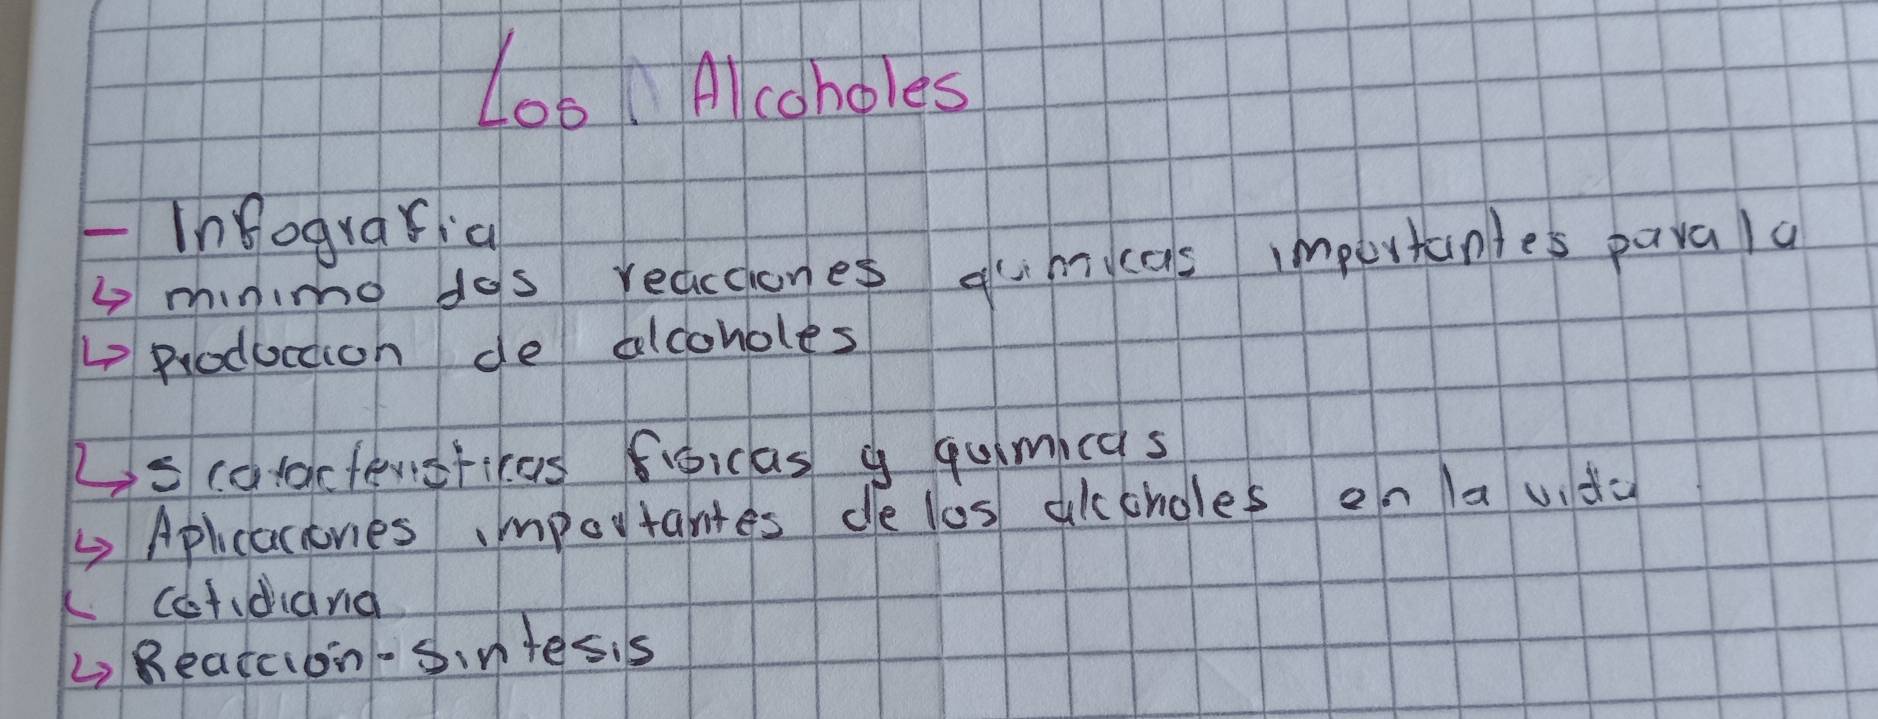 Los Alcoholes
- Infografia
↳ minimo dos reacciones quimicas importantes para la
↳ produccion de alcoholes
↳ 5 caracteristicas fisicas y quimicas
↳ Aplicaciones importantes de los alcoholes en la vida
cotidiana
↳ Reacción - Sintesis